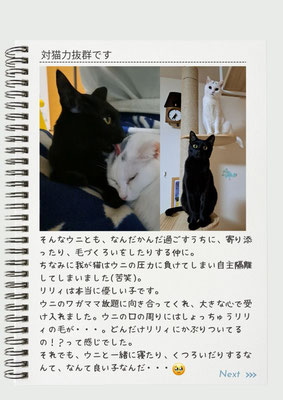 対猫力抜群です
そんなウニとも、なんだかんだ過ごすうちに、寄り添
ったり、毛づくろいをしたりする仲に。
ちなみに我が猫はウニの圧力に負けてしまい自主隔離
してしまいました(苦笑)。
リリィは本当に優しい子です。
ウニのワガママ放題に向き合ってくれ、大きな心で受
け入れました。ウニの口の周りにはしょっちゅうリリ
ィの毛が・・・。どんだけリリィにかぶりついてる
の！？って感じでした。
それでも、ウニと一緒に寝たり、くつろいだりするな
んて、なんて良い子なんだ・・・🥹
Next >>>